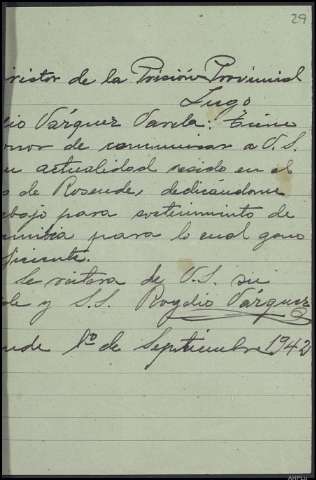 29
rector de la Prisión Provincial
Lugo
lio Vázquez Varela: Tiene
onor de comunicar a V.S.
en actualidad resido en el
o de Rosende, dedicandome
abajo para sostenimiento de
amilia para lo cual gano
ficiente.
Se reitera de V.S. su
de y S.S. Rogelio Vazquez
ende 1º de Septiembre 1942
AHPLU